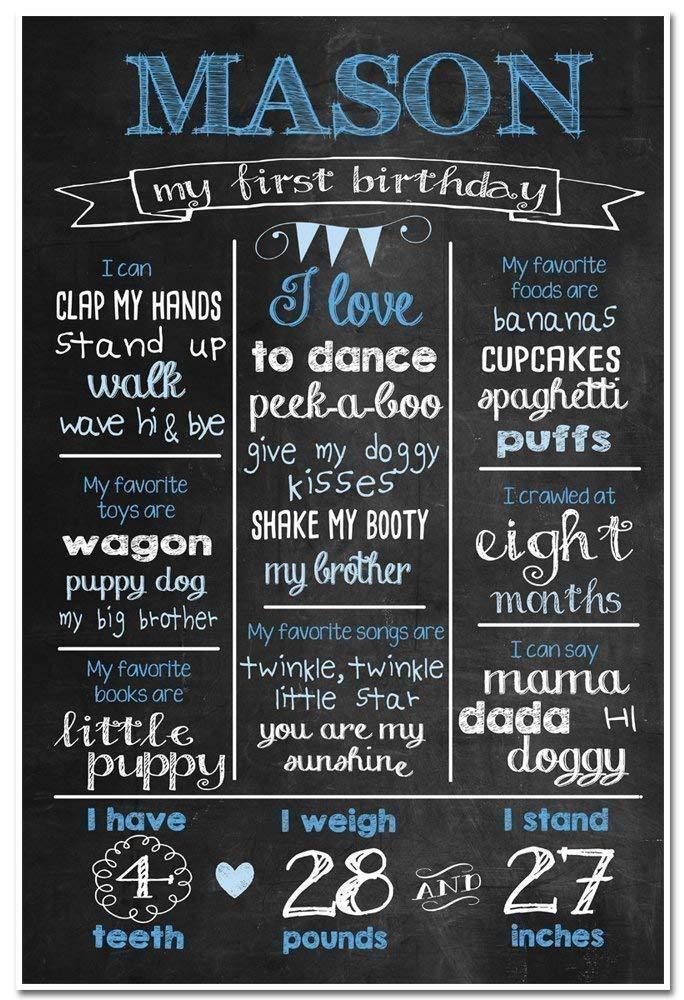 MASON
my first birthday
I can
CLAP MY HANDS
Stand up
walk
wave hi & bye
My favorite
toys are
wagon
puppy dog
my big brother
My favorite
books are
little
puppy
I love
to dance
peek-a-boo
give my doggy
kisses
SHAKE MY BOOTY
my brother
My favorite songs are
twinkle, twinkle
little star
you are my
sunshine
My favorite
foods are
bananas
CUPCAKES
spaghetti
puffs
I crawled at
eight
months
I can say
mama
dada HI
doggy
I have
4
teeth
I weigh
28
pounds
AND
I stand
27
inches